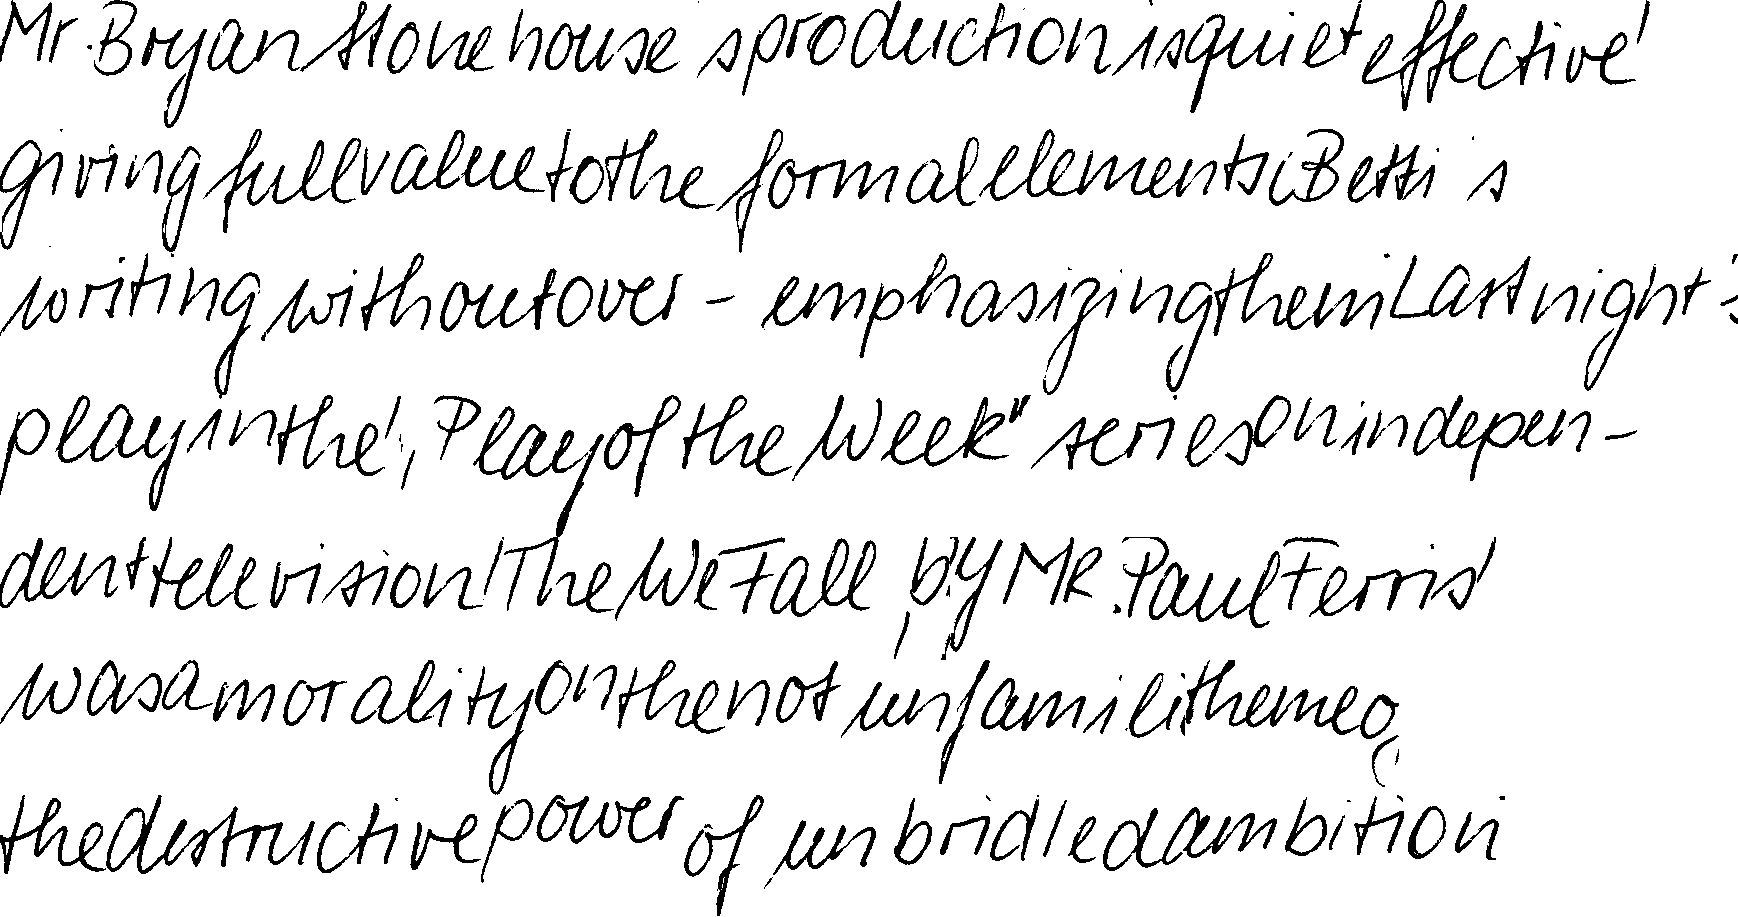 Mr. Bryan Stonehouse s production is quiet effective'
giving full value to the formal elements i Betti s
writing without over - emphasizing them i Last night 's
play in the ' , Play of the Week" series on indepen -
dent television ' The We Fall , by MR. Paul Ferris '
was a morality on the not unfamili theme o
the destructive power of unbridled ambition